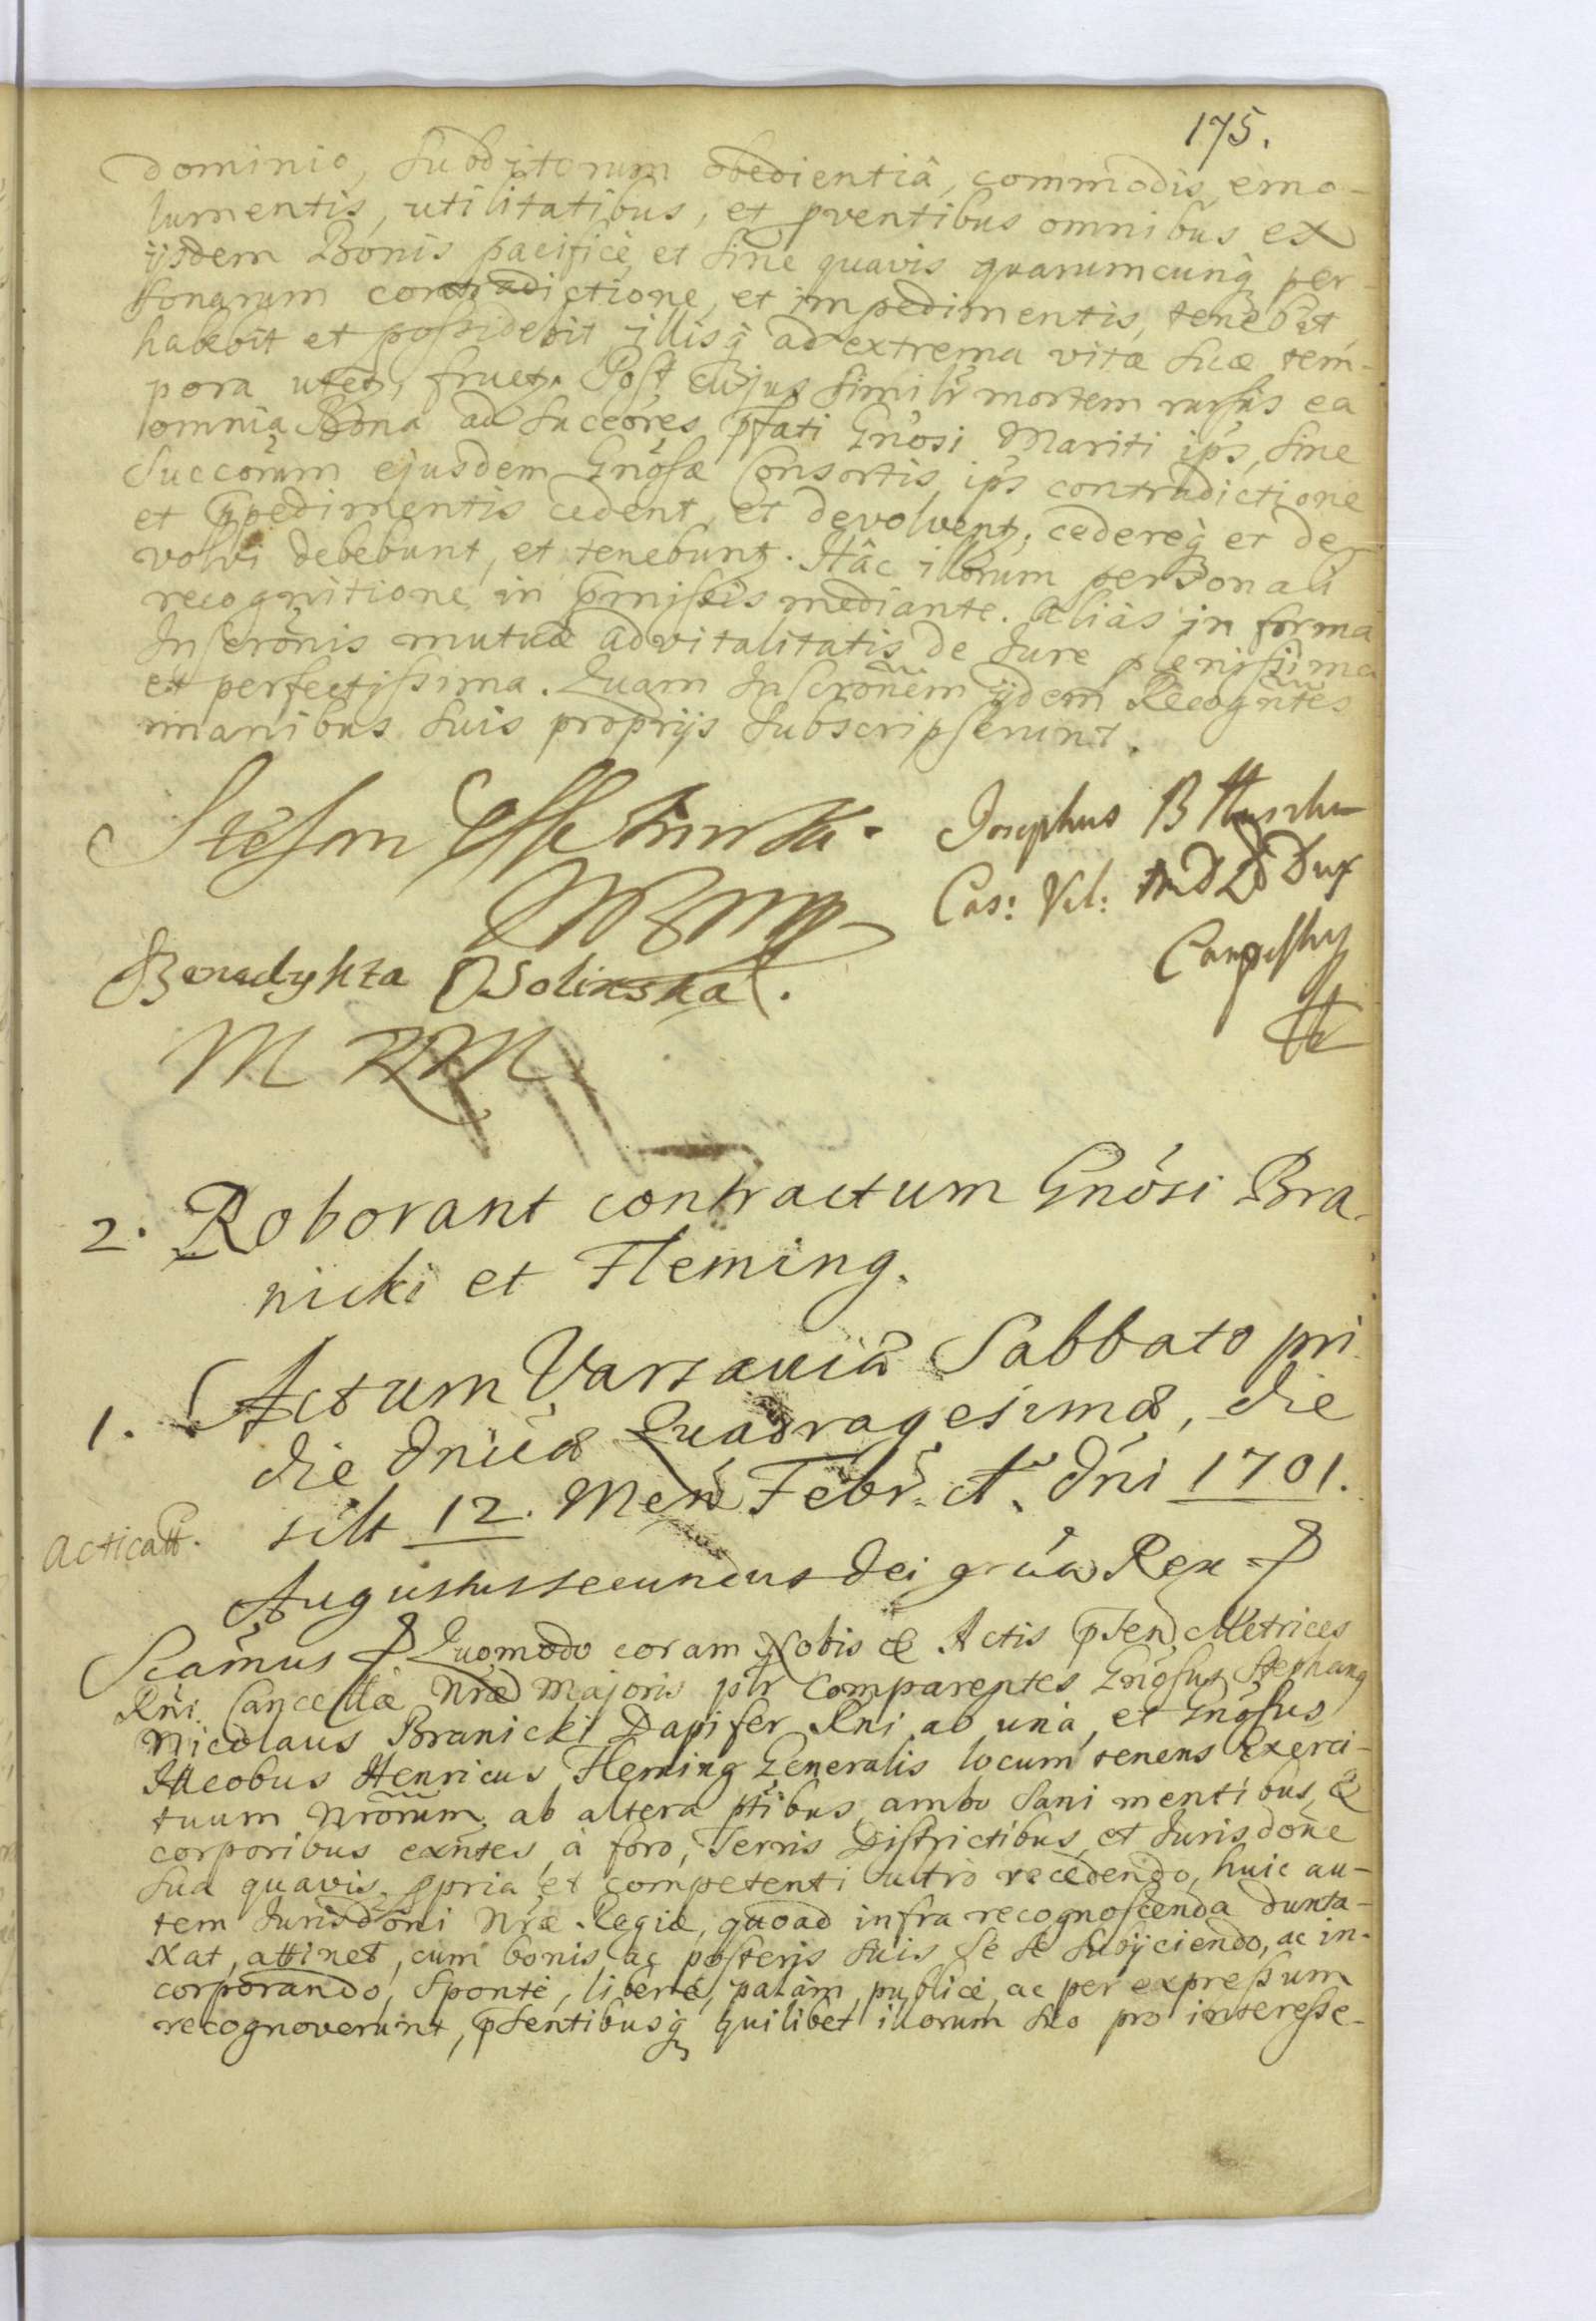 175.
dominio, subditorum obedientiâ, commodis, emo-
lumentis, utilitatibus, et pventibus omnibus ex
ijsdem Bonis pacificè, et sine quavis quarumcunq; per-
sonarum contradictione, et impedimentis, tenebit
habebit et possidebit illisq; ad extrema vitæ suæ tem-
pora utet, fruet. Post cujus simili mortem rursus ea
omnia Bona ad succeores pfati Gnosi Mariti ips, sine
succorum ejusdem Gnosæ Consortis ips contradictione
et impedimentis cedent, et devolvent, cedereq; et de-
volvi debebunt, et tenebunt. Hâc illorum personali
recognitione in pmissis mediante. Aliàs in forma
Inscronis mutuæ advitalitatis de Jure plenissima
et perfectissima. Quam Inscronem ijdem Recogntes
manibus suis proprijs subscripserunt.
Stefan
Josephus B
Cas: Vil: MDL Dux
Campestry
Benedykta Ossolinska.
2. Roborant contractum Gnosi Bra-
nicki et Fleming.
1. Actum Varsaviæ Sabbato pri-
die Dnicæ Quadragesimæ, die
silt 12. Mens Febr. A. Dni 1701.
Acticatt.
Augustus secundus Dei gr̃a Rex
Scamus Quomodo coram Nobis & Actis psen. Metrices
Rni. Cancellæ Nræ Majoris plr Comparentes Gnosus Stephang
Nicolaus Branicki Dapifer Rni ab unà, et Gnosus
Jacobus Henricus Fleming Generalis locum tenens Exerci-
tuum Nrorum ab altera ptibus, ambo sani mentibus, &
corporibus exntes, à foro, Terris Districtibus, et Jurisdone
sua quavis ppria et competenti ultro recedendo, huic au-
tem Jurisdoni Nræ Regiæ, quoad infra recognoscenda dunta-
xat, attinet, cum bonis, ac posteris suis se se subijciendo, ac in-
corporando, Sponte, liberè, palàm, publicè, ac per expressum
recognoverunt, psentibusq; quilibet illorum suo pro interesse-